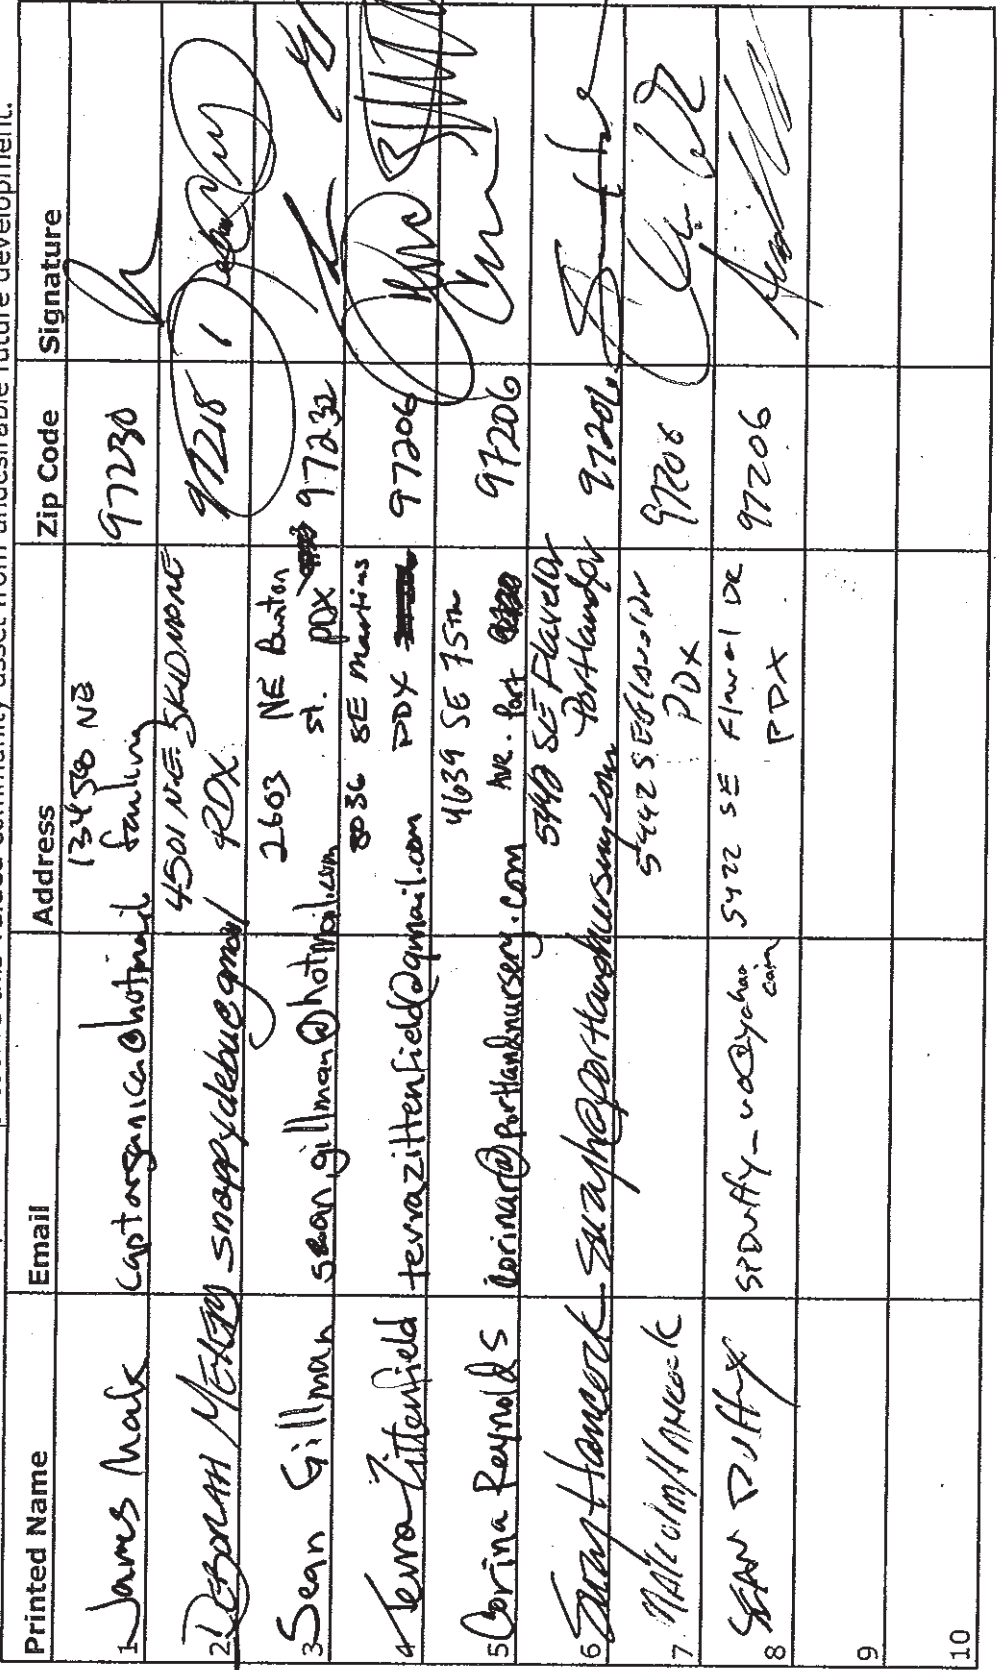 Printed Name Email Address Zip Code Signature
1 James captorganica@hotmail 13450 NE 97230
2 DEBORAH snappydebu@gmail 4501 N.E. SKIDMORE PDX 97218
3 Sean Gillman sean.gillman@hotmail.com 2603 NE Burton st. PDX 97232
4 Terra Zittenfield terrazittenfield@gmail.com 8036 SE Martins PDX 97206
5 Corina Reynolds corinar@portlandnursery.com 4639 SE 75th Ave. Port 97206
6 Suzy Hancock suzyh@portlandnursery.com 5442 SE Flavel Dr Portland or 97206
7 Malcolm Hancock 5442 SE Flavel Dr PDX 97206
8 SEAN DUFFY 5422 SE Flavel DR PDX 97206
9
10